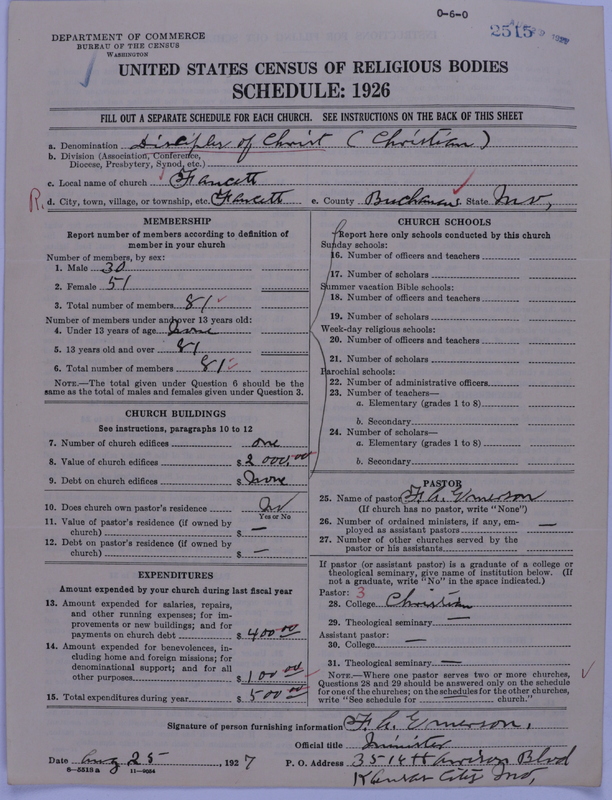 0-6-0
2515
DEPARTMENT OF COMMERCE
BUREAU OF THE CENSUS
WASHINGTON
UNITED STATES CENSUS OF RELIGIOUS BODIES
SCHEDULE: 1926
FILL OUT A SEPARATE SCHEDULE FOR EACH CHURCH. SEE INSTRUCTIONS ON THE BACK OF THIS SHEET
a. Denomination Disciples of Christ (Christian)
b. Division (Association, Conference,
Diocese, Presbytery, Synod, etc.)
c. Local name of church Faucett
R. d. City, town, village, or township, etc. Faucett e. County Buchanan State Mo,
MEMBERSHIP
Report number of members according to definition of
member in your church
Number of members, by sex:
1. Male 30
2. Female 51
3. Total number of members 81
Number of members under and over 13 years old:
4. Under 13 years of age None
5. 13 years old and over 81
6. Total number of members 81
NOTE.—The total given under Question 6 should be the
same as the total of males and females given under Question 3.
CHURCH BUILDINGS
See instructions, paragraphs 10 to 12
7. Number of church edifices one
8. Value of church edifices $ 2000.00
9. Debt on church edifices $ None
10. Does church own pastor's residence No
Yes or No
11. Value of pastor's residence (if owned by
church) $ —
12. Debt on pastor's residence (if owned by
church) $ —
EXPENDITURES
Amount expended by your church during last fiscal year
13. Amount expended for salaries, repairs,
and other running expenses; for im-
provements or new buildings; and for
payments on church debt $ 400.00
14. Amount expended for benevolences, in-
cluding home and foreign missions; for
denominational support; and for all
other purposes $ 100.00
15. Total expenditures during year $ 500.00
CHURCH SCHOOLS
Report here only schools conducted by this church
Sunday schools:
16. Number of officers and teachers
17. Number of scholars
Summer vacation Bible schools:
18. Number of officers and teachers
19. Number of scholars
Week-day religious schools:
20. Number of officers and teachers
21. Number of scholars
Parochial schools:
22. Number of administrative officers
23. Number of teachers—
a. Elementary (grades 1 to 8)
b. Secondary
24. Number of scholars—
a. Elementary (grades 1 to 8)
b. Secondary
PASTOR
25. Name of pastor F. A. Emerson
(If church has no pastor, write "None")
26. Number of ordained ministers, if any, em-
ployed as assistant pastors —
27. Number of other churches served by the
pastor or his assistants
If pastor (or assistant pastor) is a graduate of a college or
theological seminary, give name of institution below. (If
not a graduate, write "No" in the space indicated.)
Pastor: 3
28. College Christian
29. Theological seminary —
Assistant pastor:
30. College —
31. Theological seminary —
NOTE.—Where one pastor serves two or more churches,
Questions 28 and 29 should be answered only on the schedule
for one of the churches; on the schedules for the other churches,
write "See schedule for church."
Signature of person furnishing information F. A. Emerson,
Official title Minister
Date Aug 25, 1927 P. O. Address 3514 Harrison Blvd
8-5518 a 11-9054
Kansas City Mo,